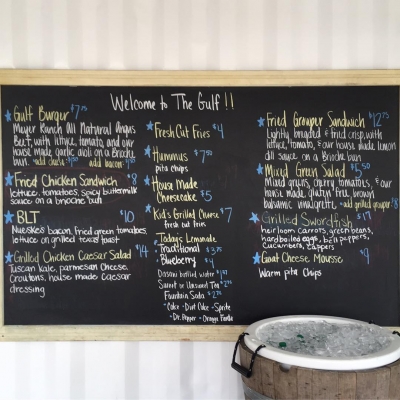 Welcome to The Gulf!!
Gulf Burger $7.75
Meyer Ranch All Natural Angus
Beef, with lettuce, tomato, and our
house made garlic aioli on a Brioche
bun. add cheese add bacon
Fried Chicken Sandwich $8
lettuce, tomatoes, spicy buttermilk
sauce on a brioche bun
BLT $10
Nueske's bacon, fried green tomatoes,
lettuce on grilled texas toast
Grilled Chicken Caesar Salad $14
Tuscan Kale, parmesan cheese,
croutons, house made Caesar
dressing
Fresh Cut Fries $4
Hummus $7.50
pita chips
House Made
Cheesecake $5
Kid's Grilled Cheese $7
fresh cut fries
Today's Lemonade
Traditional $3.75
Blueberry $4
Dasani bottled water
Sweet or Unsweet Tea
Fountain Soda
-Coke -Diet Coke -Sprite
-Dr. Pepper -Orange Fanta
Fried Grouper Sandwich $12.75
Lightly breaded & fried crisp, with
lettuce, tomato, & our house made lemon
dill sauce on a Brioche bun
Mixed Green Salad $5.50
Mixed greens, cherry tomatoes, & our
house made gluten free brown
balsamic vinaigrette -add grilled grouper $8
Grilled Swordfish $17
heirloom carrots, green beans,
hardboiled eggs, bell peppers,
cucumbers, capers
Goat Cheese Mousse $9
warm pita chips